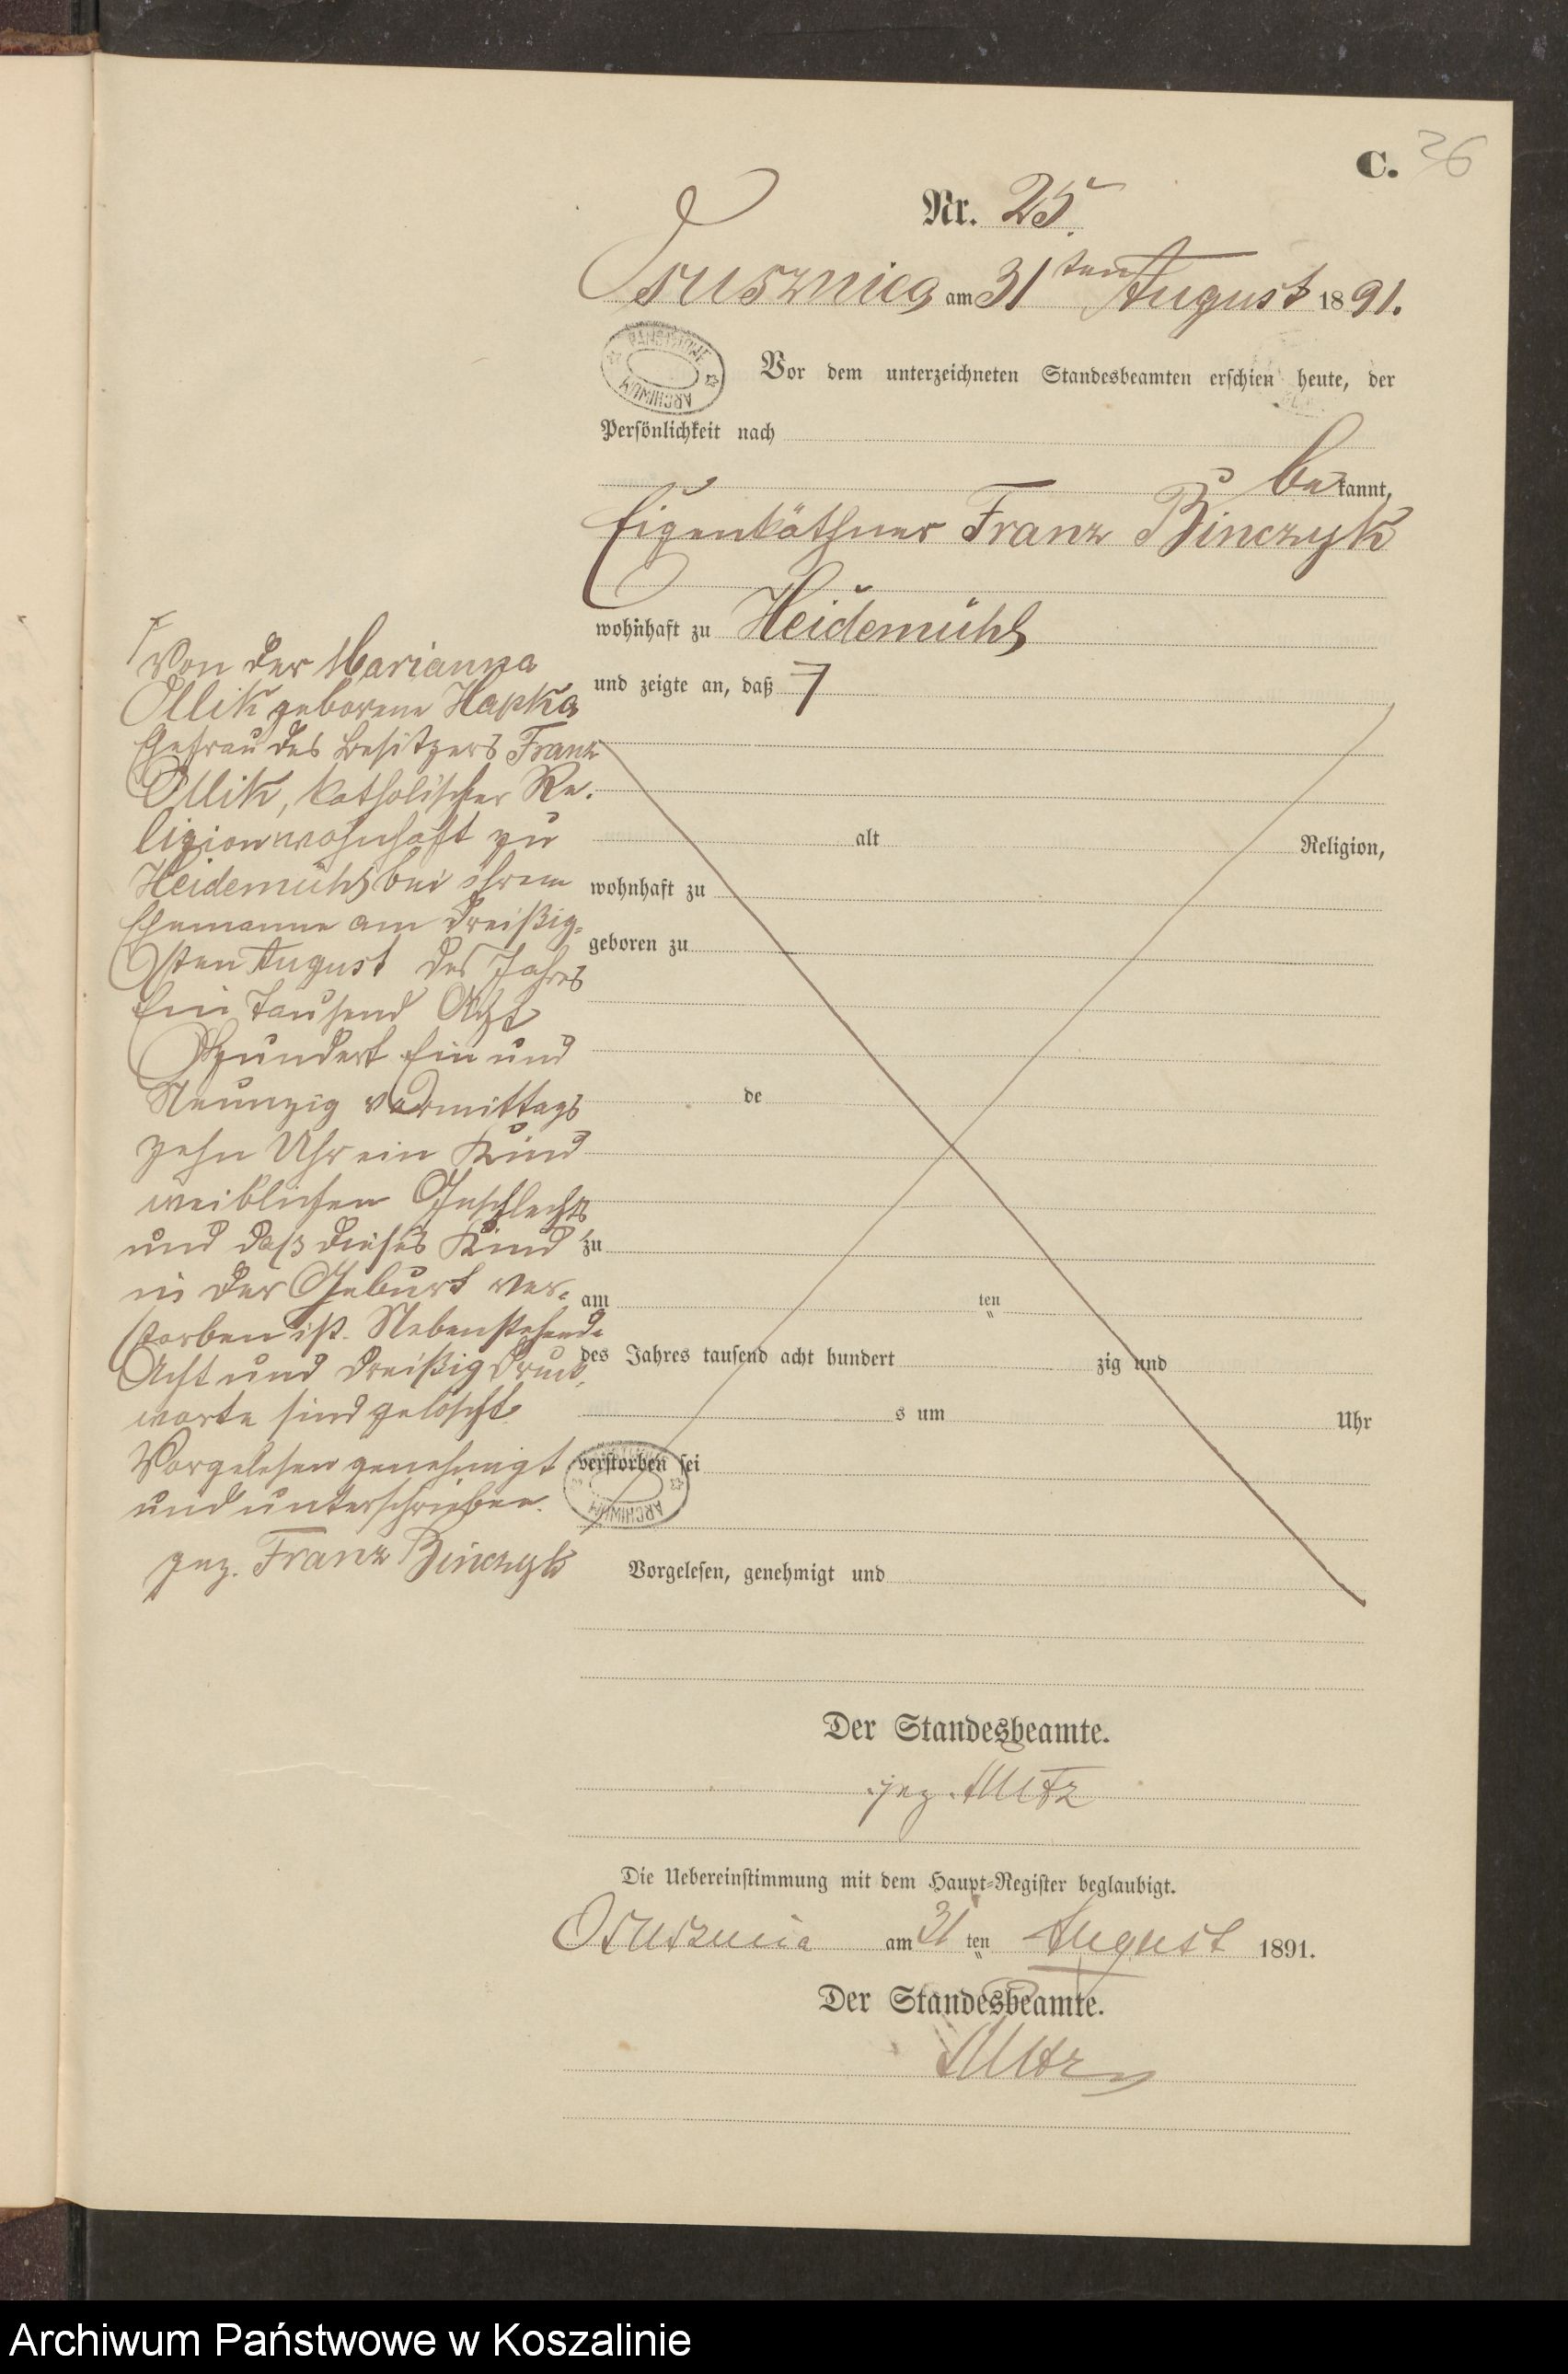 C. 36
Nr. 25.
Osusznica am 31ten August 1891.
PAŃSTWOWE ARCHIWUM
Vor dem unterzeichneten Standesbeamten erschien heute, der
Persönlichkeit nach
bekannt,
Eigenkäthner Franz Binczyk
wohnhaft zu Heidemühl
und zeigte an, daß
Von der Marianna
Ollik geborene Hapka
Ehefrau des Besitzers Franz
Ollik, katholischer Re-
ligion wohnhaft zu
Heidemühl bei ihrem
Ehemanne am dreißig-
sten August des Jahres
Ein Tausend Acht
Hundert Ein und
Neunzig vormittags
zehn Uhr ein Kind
weiblichen Geschlechts
und daß dieses Kind
in der Geburt ver-
storben ist. Nebenstehende
Acht und dreißig Druck-
worte sind gelöscht
Vorgelesen genehmigt
und unterschrieben.
gez. Franz Binczyk
alt Religion,
wohnhaft zu
geboren zu
de
zu
am ten
des Jahres tausend acht hundert zig und
s um Uhr
verstorben sei
ARCHIWUM
Vorgelesen, genehmigt und
Der Standesbeamte.
gez.
Die Uebereinstimmung mit dem Haupt-Register beglaubigt.
Osusznica am 31 ten August 1891.
Der Standesbeamte.
Archiwum Państwowe w Koszalinie